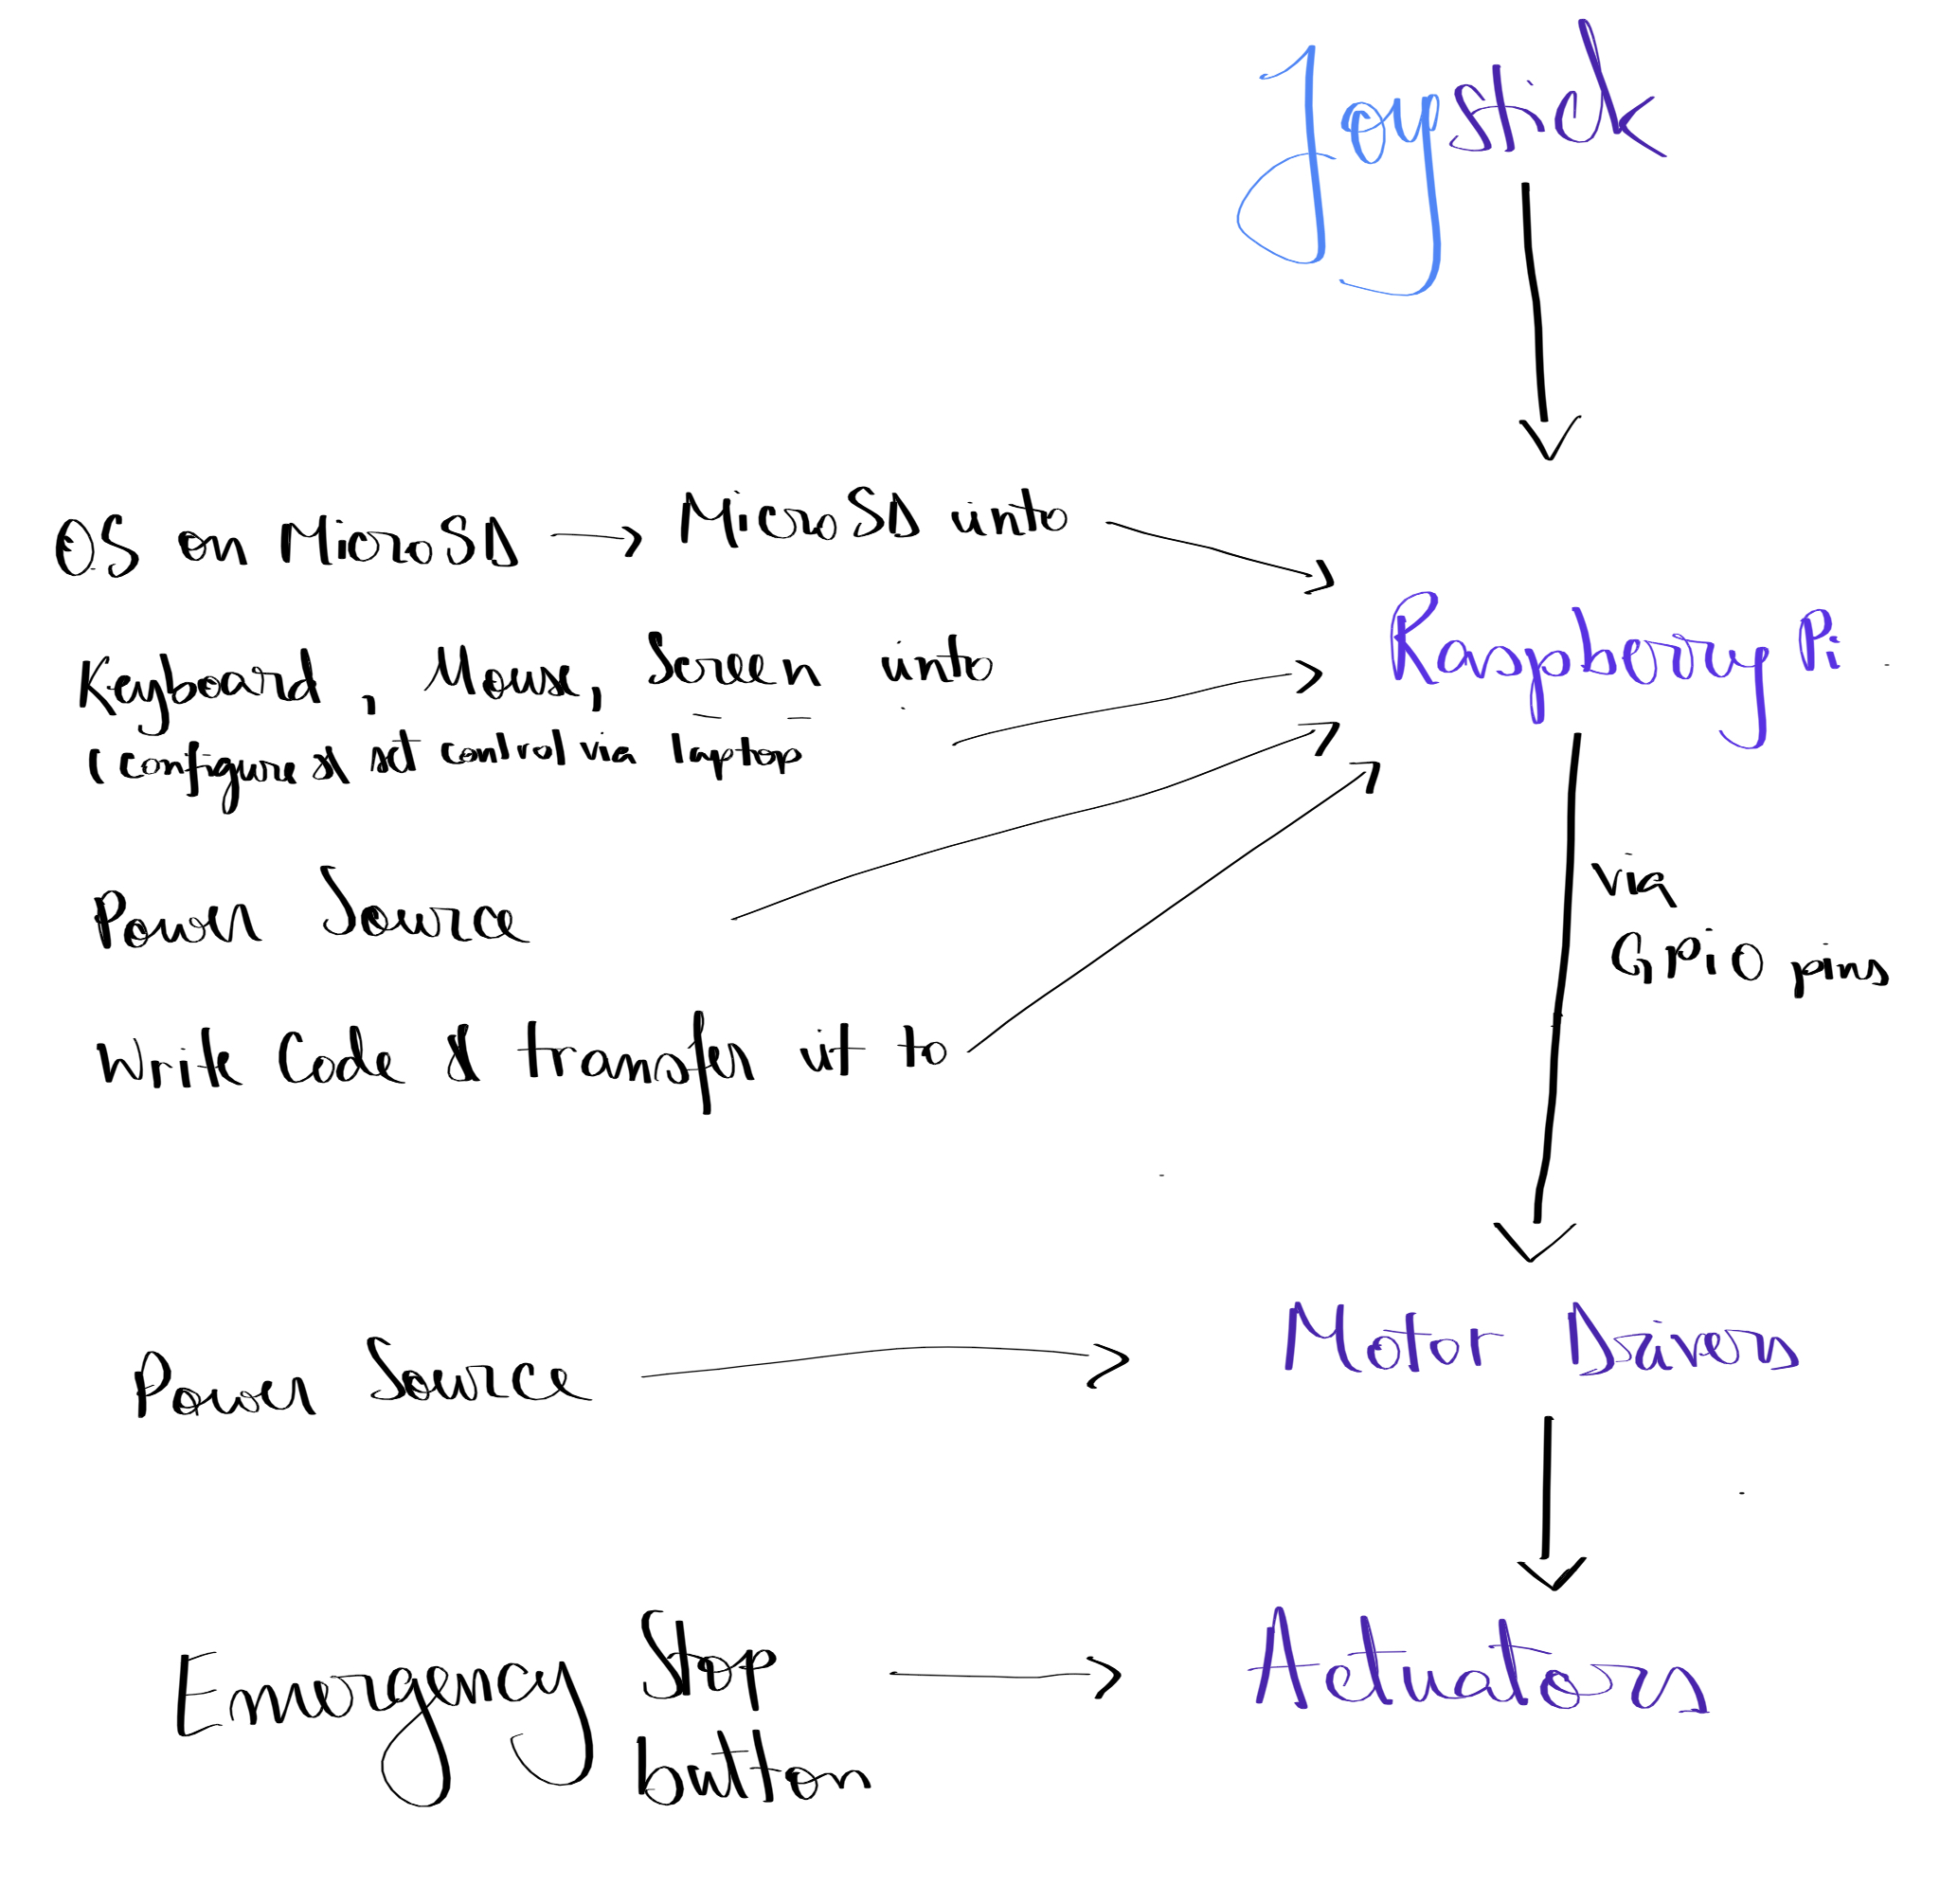 Joystick
OS on MicroSD → MicroSD into
Raspberry Pi
Keyboard, Mouse, Screen into
(Configure & set control via laptop
via
GPiO pins
Power Source
Write Code & transfer it to
Motor Drivers
Power Source
Actuators
Emergency Stop
button